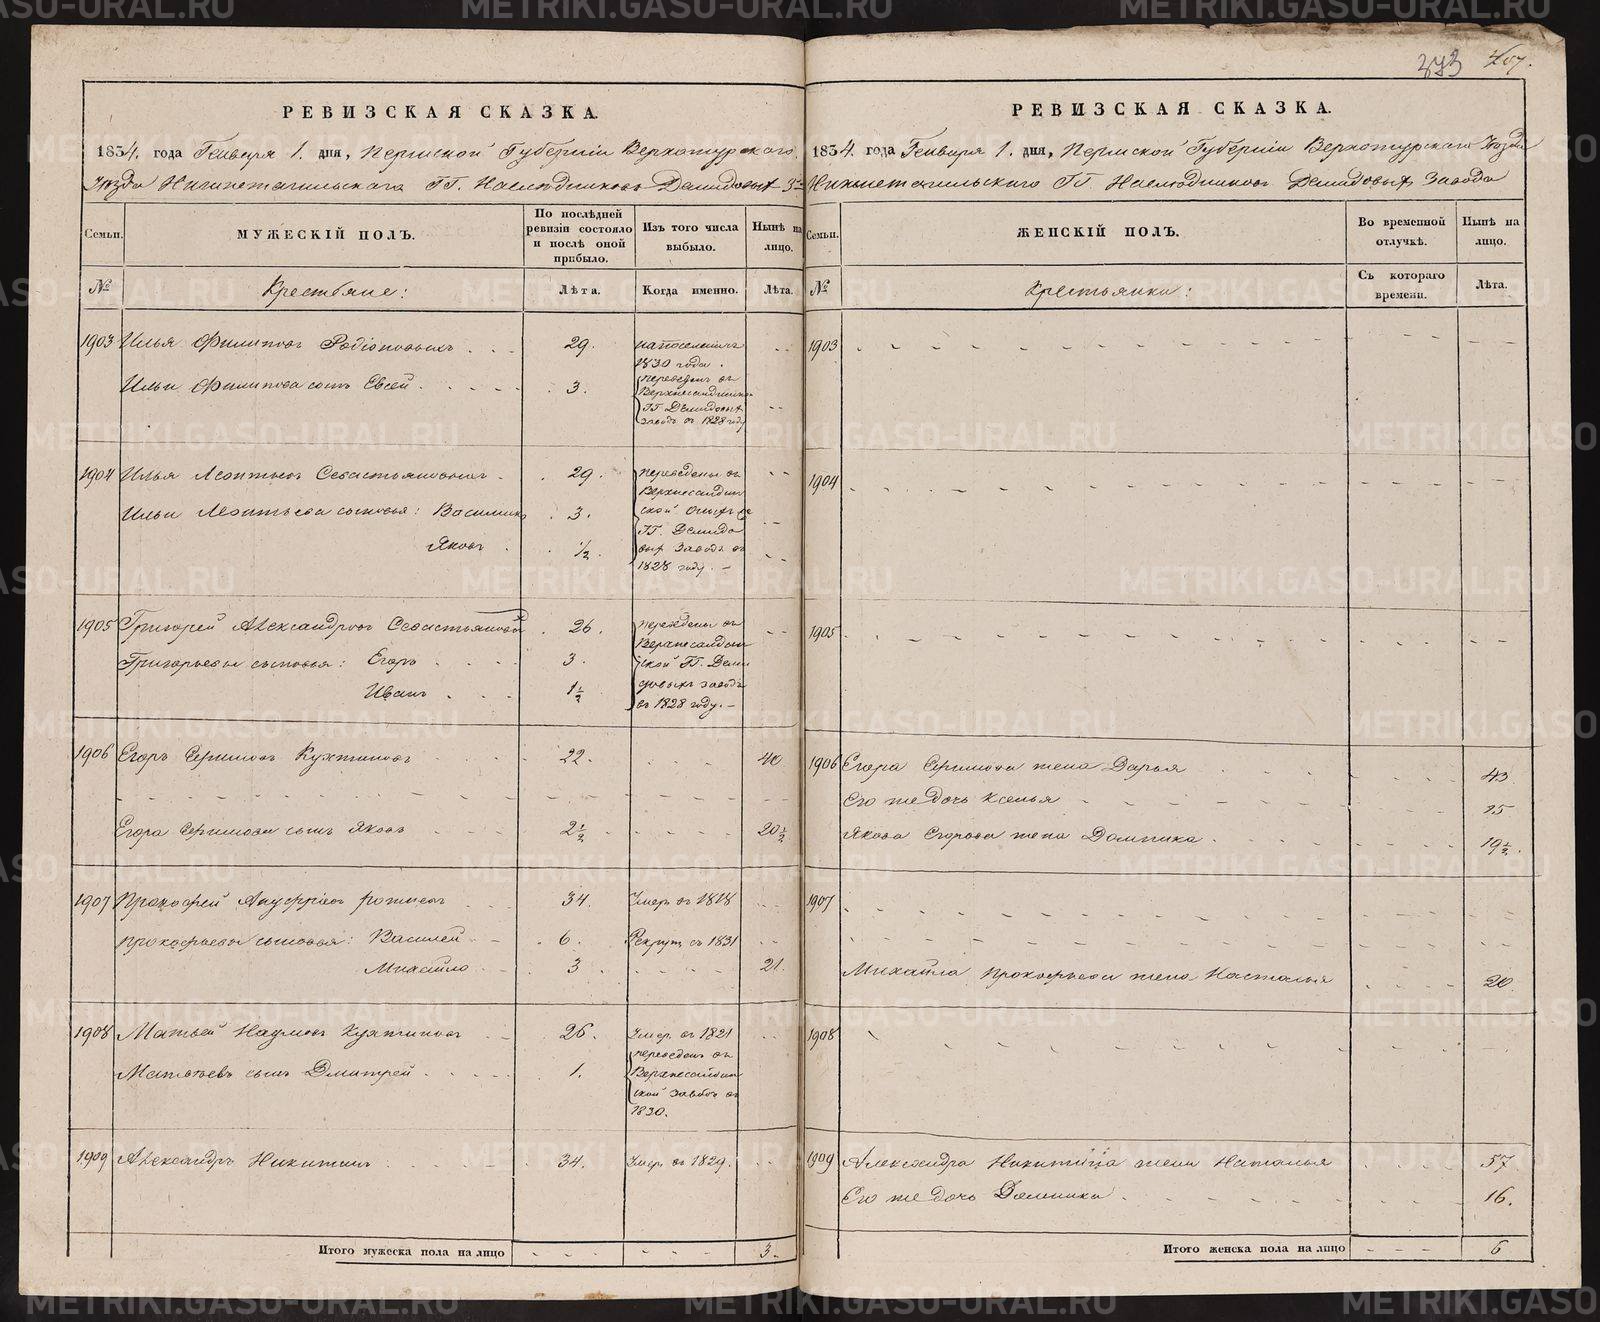 373 407.
РЕВИЗСКАЯ СКАЗКА.
1834. года Генваря 1. дня, Пермской Губерніи Верхотурскаго
Уѣзда Нижнетагильскаго ГГ. Наслѣдниковъ Демидовыхъ
Семьи.
МУЖЕСКІЙ ПОЛЪ.
По послѣдней ревизіи состояло и послѣ оной прибыло.
Изъ того числа выбыло.
Нынѣ на лицо.
№
Крестьяне:
Лѣта.
Когда именно.
Лѣта.
1903 Илья Филиповъ Родіоновыхъ 29. на поселеніи 1830 года.
Ильи Филипова сынъ Евсей 3. переведенъ въ Верхнесалдинско ГГ Демидовыхъ заводъ въ 1828 году
1904 Илья Леонтьевъ Севастьяновыхъ 29. переведены въ Верхнесалдинской ГГ. Демидовыхъ заводъ въ 1828 году.
Ильи Леонтьева сыновья: Василій 3.
Яковъ 1/2.
1905 Григорей Александровъ Севастьяновъ 26. переведены въ Верхнесалдинской ГГ. Демидовыхъ заводъ въ 1828 году.
Григорьевы сыновья: Егоръ 3.
Иванъ 1 1/2
1906 Егоръ Сергиевъ Кухтиновъ 22. 40
Егора Сергиева сынъ Яковъ 2 1/2 20 1/2
1907 Прокофей Ануфріевъ 34. Умеръ въ 1818
Прокофьевы сыновья: Василей 6. Рекрут. съ 1831
Михайло 3 21.
1908 Матвей Наумовъ Кухтиновъ 26. Умер. въ 1821
Матвѣевъ сынъ Дмитрей 1. переведенъ въ Верхнесалдинской заводъ въ 1830.
1909 Александръ Никитинъ 34. Умер. въ 1829.
Итого мужеска пола на лицо 3.
РЕВИЗСКАЯ СКАЗКА.
1834. года Генваря 1. дня, Пермской Губерніи Верхотурскаго Уѣзда
Нижнетагильскаго ГГ Наслѣдниковъ Демидовыхъ Завода
Семьи.
ЖЕНСКІЙ ПОЛЪ.
Во временной отлучкѣ.
Нынѣ на лицо.
№
Крестьянки:
Съ котораго времени.
Лѣта.
1903
1904
1905
1906 Егора Сергиева жена Дарья 43
Его же дочь Ксенья 15
Якова Егорова жена Домника 19 1/2.
1907
Михайла Прокофьева жена Настасья 20
1908
1909 Александра Никитина жена Наталья 57
Его же дочь Домника 16.
Итого женска пола на лицо 6
METRIKI.GASO-URAL.RU